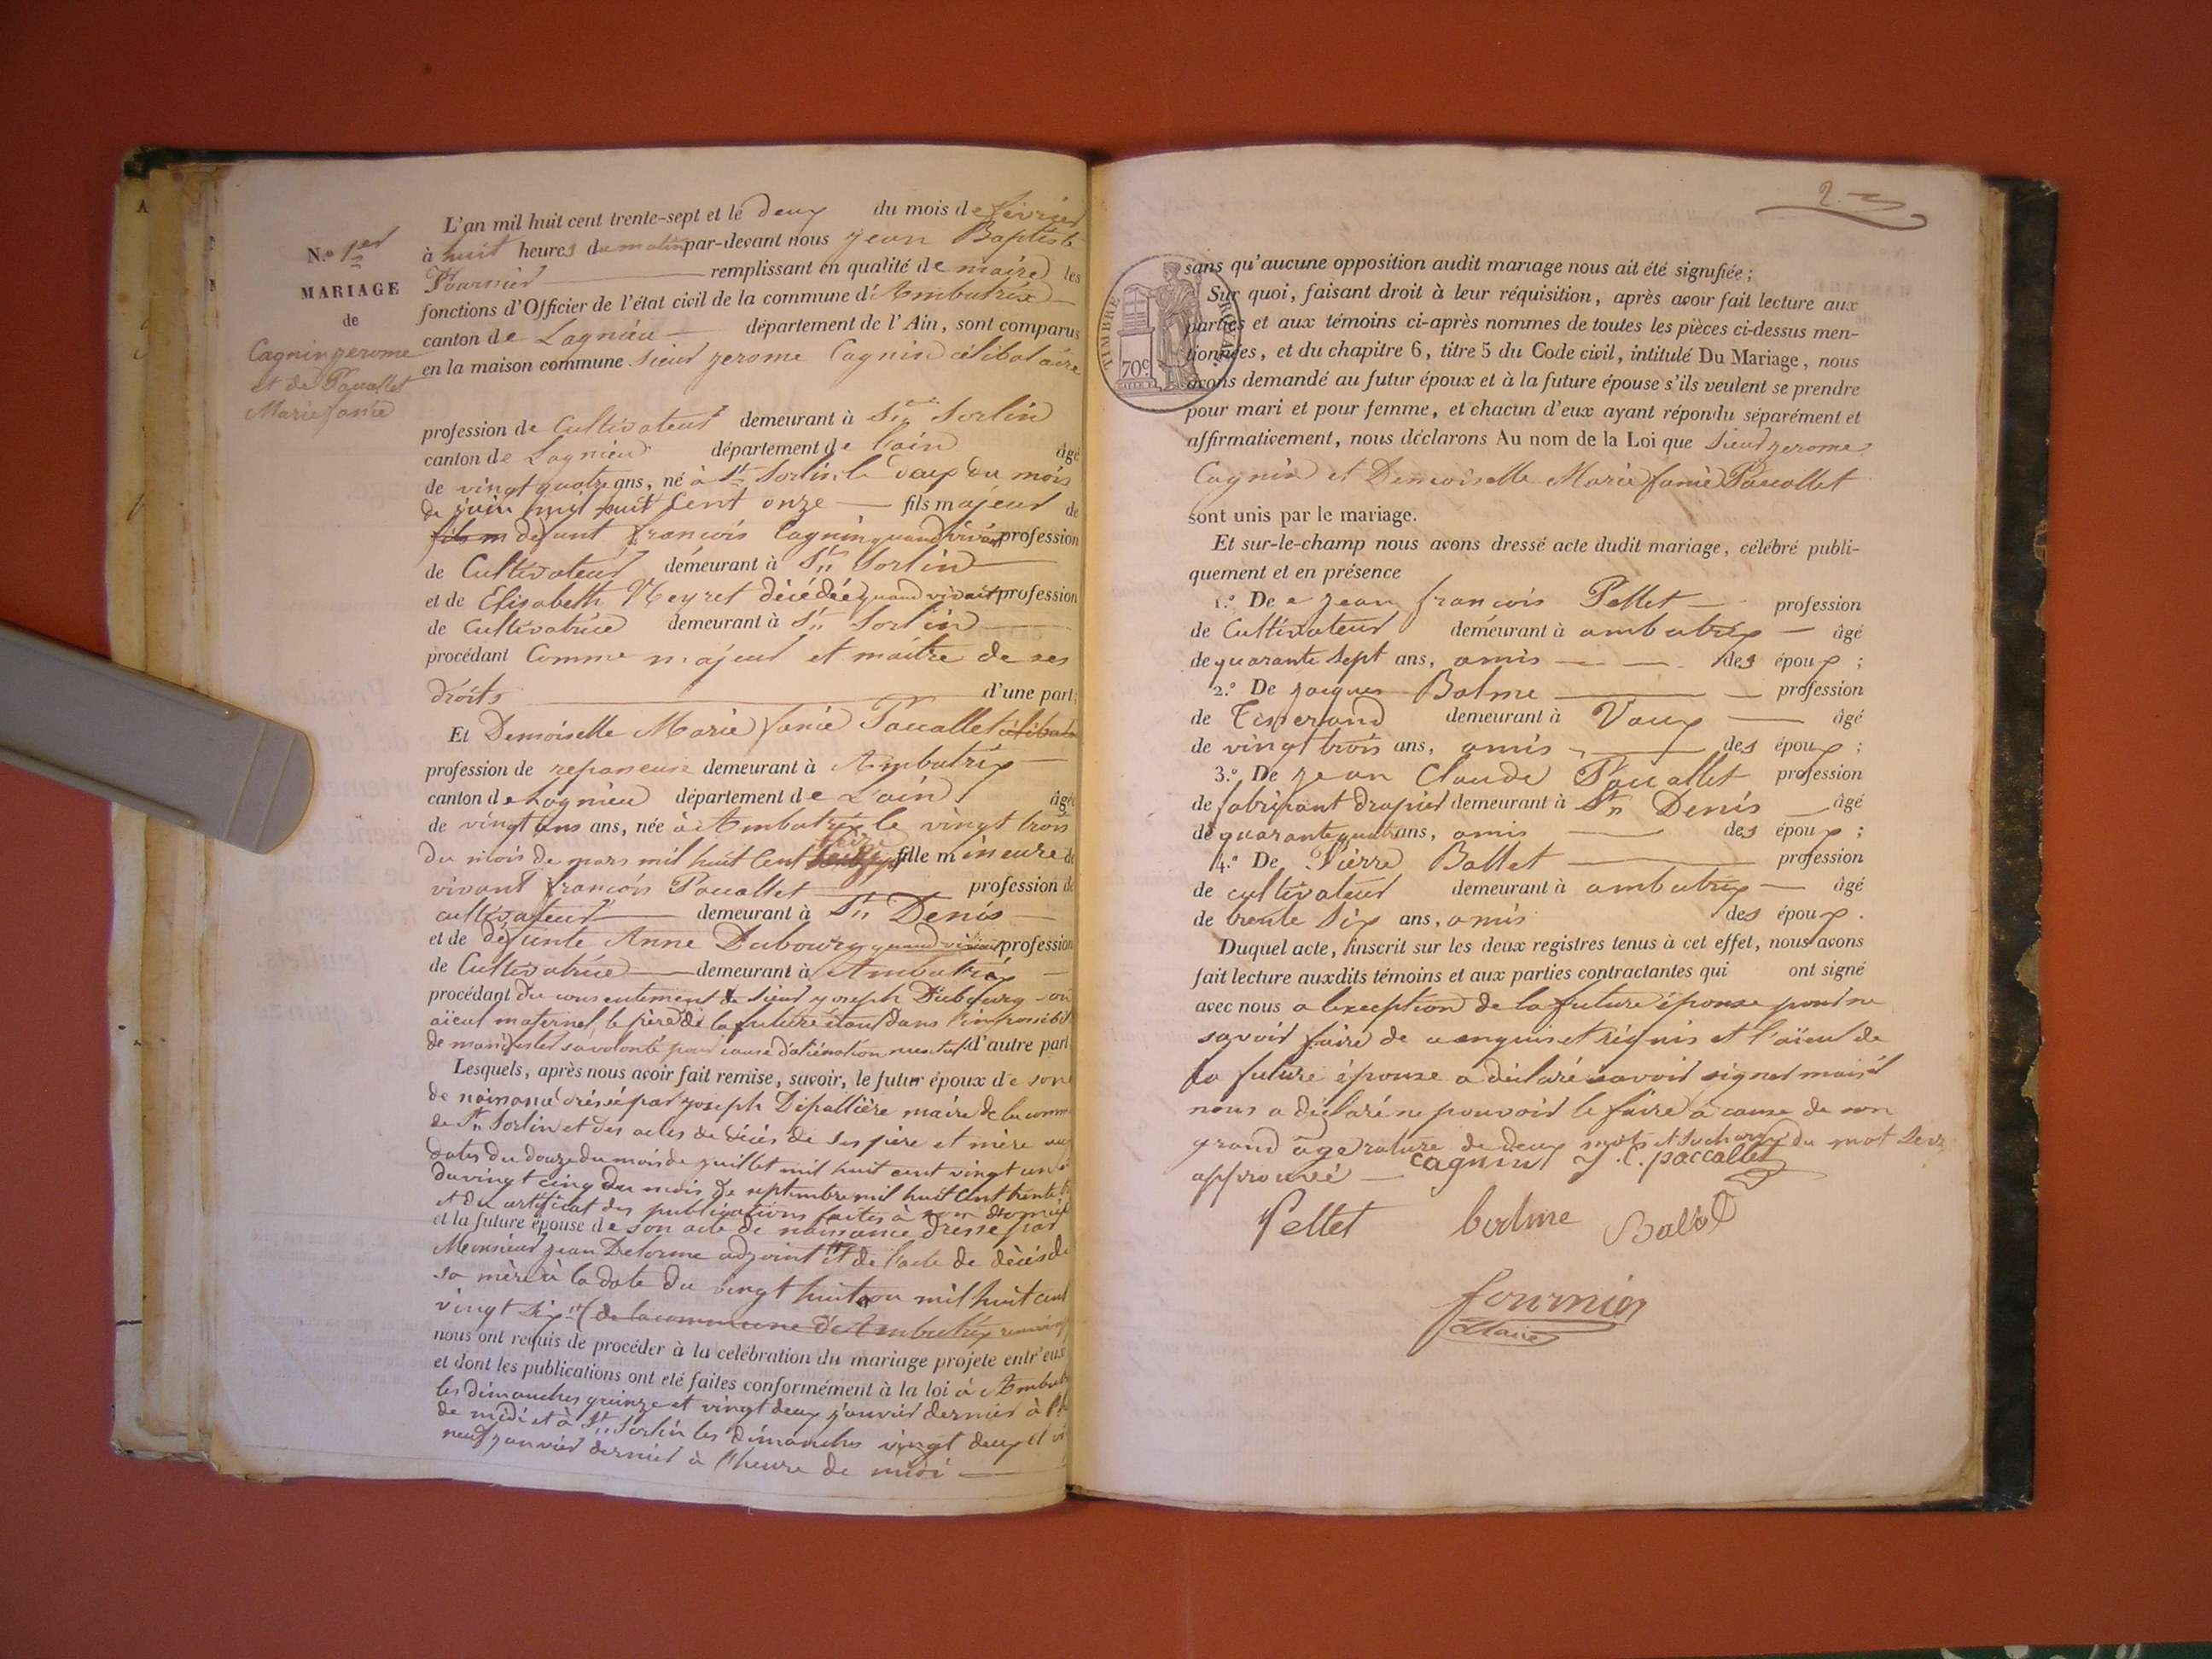 N.o 1er
MARIAGE
de
Cagnin jerome
et de Paccallet
Marie fanie
L'an mil huit cent trente-sept et le deux du mois de fevrier
à huit heures du matin par-devant nous jean Baptiste
Fournier remplissant en qualité de maire les
fonctions d'Officier de l'état civil de la commune d'Ambutrix
canton de Lagnieu département de l'Ain, sont comparus
en la maison commune Sieur jerome Cagnin célibataire
profession de Cultivateur demeurant à St Sorlin
canton de Lagnieu département de l'ain âgé
de vingt quatre ans, né à St Sorlin le du mois
de juin mil huit Cent onze fils majeur de
fils m défunt francois Cagnin quand vivait profession
de Cultivateur demeurant à St Sorlin
et de Elisabeth Neyret décédée quand vivait profession
de Cultivatrice demeurant à St Sorlin
procédant Comme majeur et maitre de ses
droits d'une part;
Et Demoiselle Marie fanie Paccallet
profession de repasseuse demeurant à Ambutrix
canton de Lagnieu département de L'ain âgée
de vingt ans ans, née à Ambutrix le vingt trois
du mois de mars mil huit Cent fille mineure de
vivant francois Paccallet profession de
cultivateur demeurant à St Denis
et de défunte Anne Dubourg quand vivait profession
de Cultivatrice demeurant à Ambutrix
procédant du consentement de Sieur joseph Dubourg son
aïeul maternel, le père de la future étant dans l'impossibil
de manifester sa volonté pour cause d'aliénation mentale d'autre part
Lesquels, après nous avoir fait remise, savoir, le futur époux de son
de naissance dréssé par joseph Dépallière maire de la comm
de St Sorlin et des actes de décès de ses père et mère aux
dates du douze du mois de juillet mil huit cent vingt un et
du vingt cinq du mois de septembre mil huit Cent trente
et du certificat des publications faites à
et la future épouse de son acte de naissance dressé par
Monsieur jean Delorme adjoint et de l'acte de décès de
sa mère à la date du vingt huit mil huit cent
vingt six de la commune d'Ambutrix
nous ont requis de procéder à la celébration du mariage projete entr'eux
et dont les publications ont eté faites conformément à la loi à Ambut
les dimanches quinze et vingt deux janvier dernier à l'h
de midi et à St Sorlin les dimanches vingt deux et vi
neuf janvier dernier à l'heure de midi
2
TIMBRE ROYAL
70c
sans qu'aucune opposition audit mariage nous ait été signifiée;
Sur quoi, faisant droit à leur réquisition, après avoir fait lecture aux
parties et aux témoins ci-après nommes de toutes les pièces ci-dessus men-
tionnées, et du chapitre 6, titre 5 du Code civil, intitulé Du Mariage, nous
avons demandé au futur époux et à la future épouse s'ils veulent se prendre
pour mari et pour femme, et chacun d'eux ayant répondu séparément et
affirmativement, nous déclarons Au nom de la Loi que Sieur jerome
Cagnin et Demoiselle Marie fanie Paccallet
sont unis par le mariage.
Et sur-le-champ nous avons dressé acte dudit mariage, célébré publi-
quement et en présence
1.o De jean francois Pellet profession
de Cultivateur demeurant à ambutrix âgé
de quarante sept ans, amis des époux;
2.o De jacques Balme profession
de Tisserand demeurant à Vaux âgé
de vingt trois ans, amis des époux;
3.o De jean Claude Paccallet profession
de fabricant drapier demeurant à St Denis âgé
de quarante quatre ans, amis des époux;
4.o De Pierre Ballet profession
de cultivateur demeurant à ambutrix âgé
de trente Six ans, amis des époux.
Duquel acte, inscrit sur les deux registres tenus à cet effet, nous avons
fait lecture auxdits témoins et aux parties contractantes qui ont signé
avec nous a l'exception de la future épouse pour ne
savoir faire de ce enquis et réquis et l'aïeul de
la future épouse a déclaré savoir signer mais il
nous a déclaré ne pouvoir le faire à cause de son
grand âge rature de deux mots et du mot
approuvée cagnin J. C. paccallet
Pellet balme Ballet
fournier
Maire